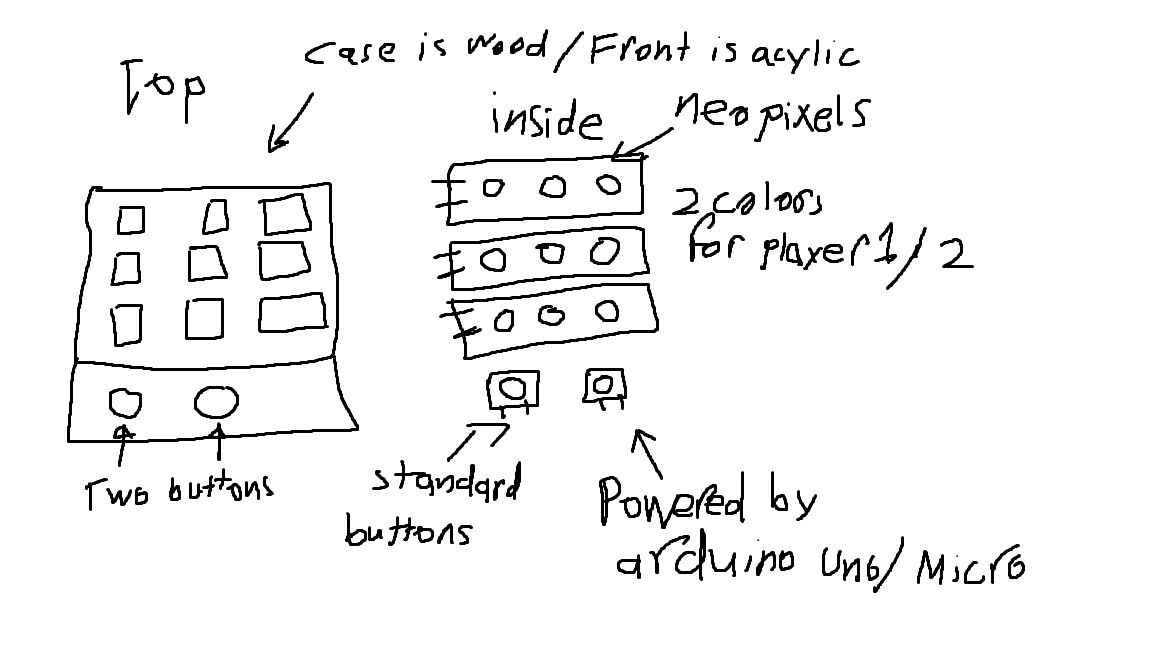 case is wood/Front is acylic
Top
inside
neopixels
2 colors
for player 1/2
Two buttons
standard
buttons
Powered by
arduino Uno/Micro